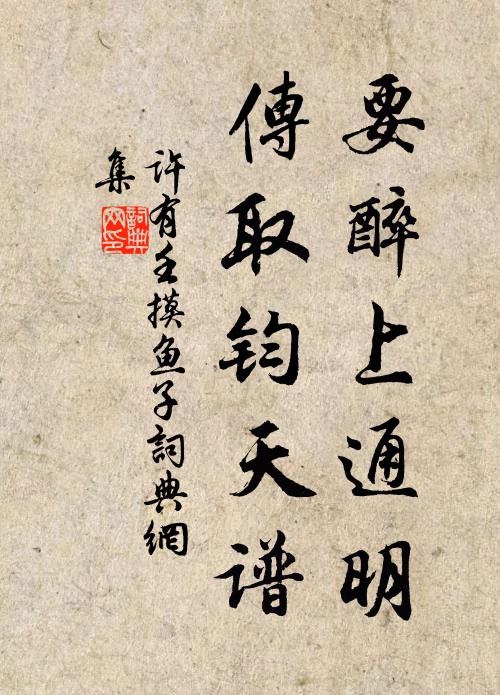 要醉上通明
傳取钧天谱
许有壬摸鱼子詞典網
集
詞典网印